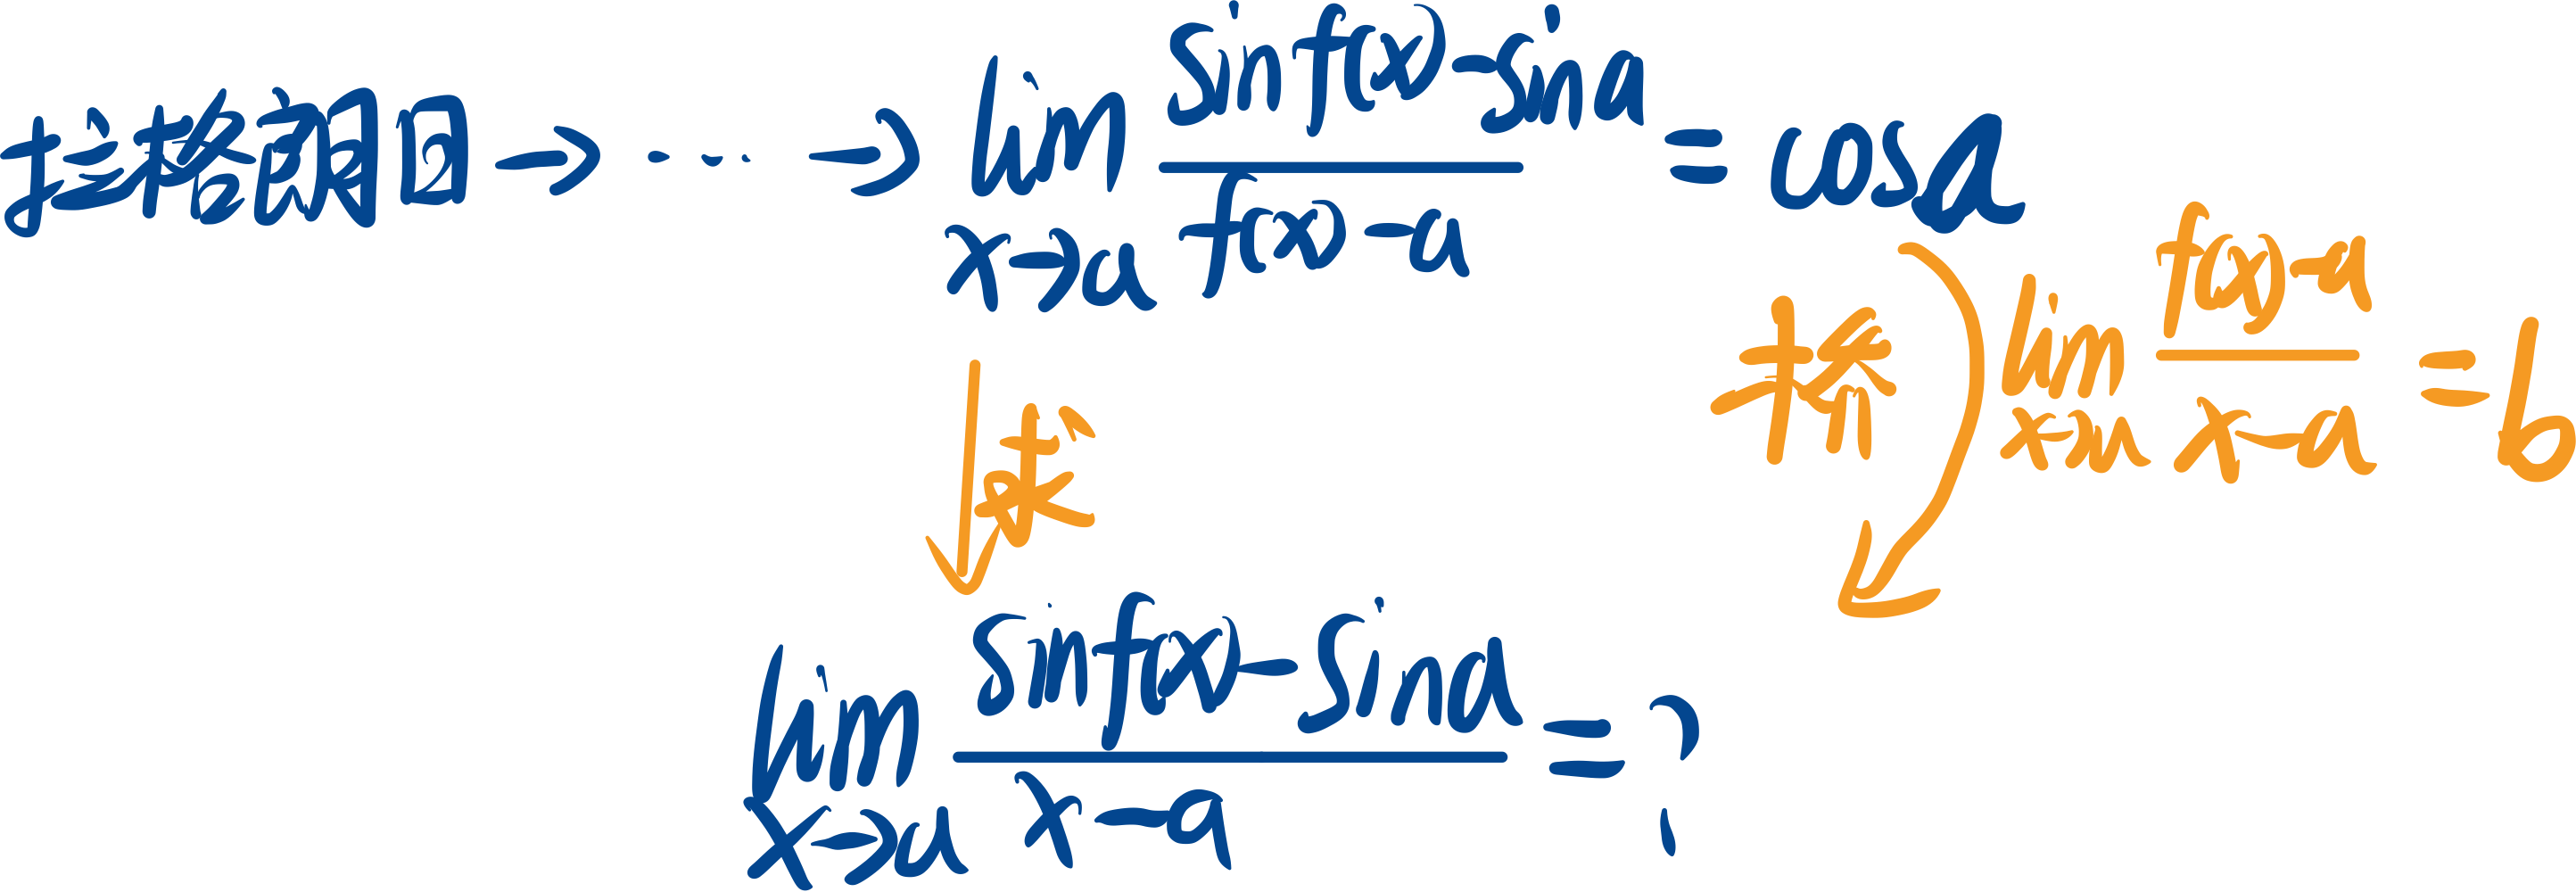 拉格朗日→···→lim x→a (sinf(x)-sina)/(f(x)-a) = cosa
桥 lim x→a (f(x)-a)/(x-a) = b
求
lim x→a (sinf(x)-sina)/(x-a) = ?